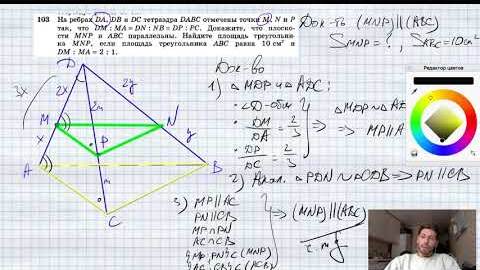 103 На ребрах DA, DB и DC тетраэдра DABC отмечены точки M, N и P
так, что DM : MA = DN : NB = DP : PC. Докажите, что плоско-
сти MNP и ABC параллельны. Найдите площадь треугольни-
ка MNP, если площадь треугольника ABC равна 10 см² и
DM : MA = 2 : 1.
Док-ть (MNP) || (ABC)
S MNP = ? , S ABC = 10 см²
Док-во
1) △MDP и △ADC:
• ∠D - общ
• DM/DA = 2/3
• DP/DC = 2/3
⇒ △MDP ~ △ADC
⇒ MP || AC
2) Анал. △PDN ~ △CDB ⇒ PN || CB
3) MP || AC
PN || CB
MP ∩ PN
AC ∩ CB
⇒ (MNP) || (ABC)
ч.т.д
D
3x
2x
2y
2m
M
N
x
P
y
A
B
m
C
Редактор цветов